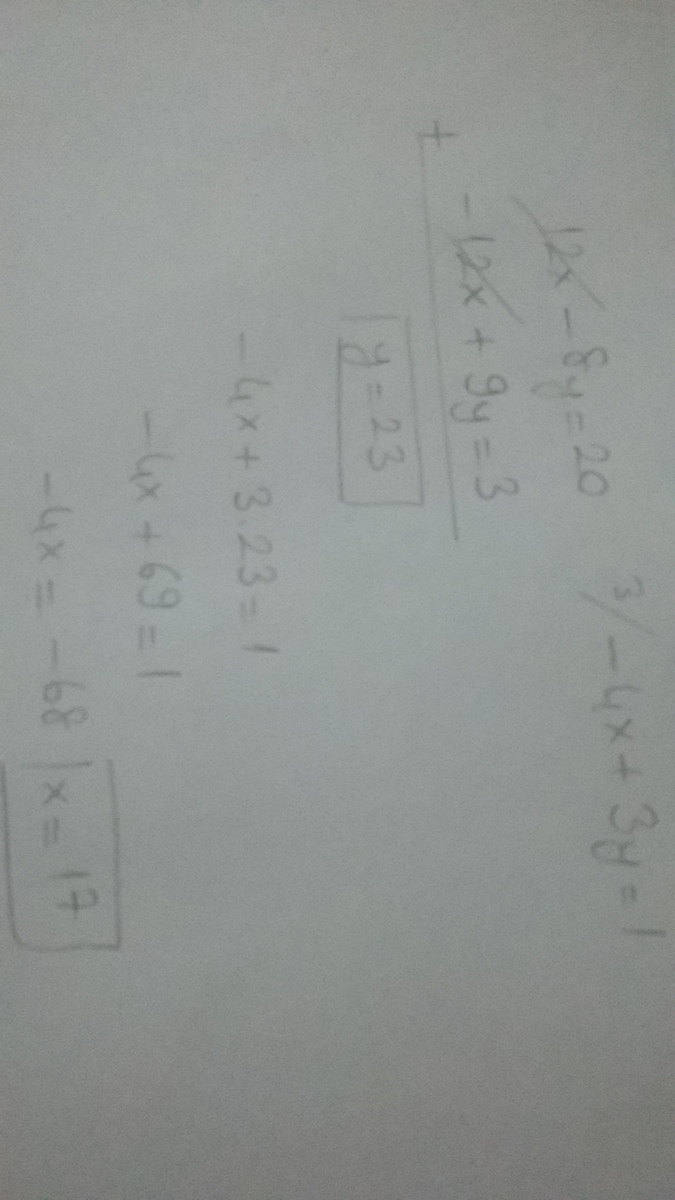 3/ -4x + 3y = 1
12x - 8y = 20
+ -12x + 9y = 3
y = 23
-4x + 3.23 = 1
-4x + 69 = 1
-4x = -68 x = 17